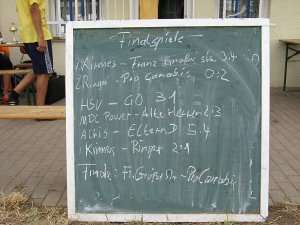 Finalspiele
Kirmes - Franz Großestr. 3:4
Ringer - Pro Cannabis 0:2
HSV - GO 3:1
MDC Power - Alte Herren 2:3
Achis - Eltern D 5:4
Kirmes - Ringer 2:1
Finale: Fr. Große Str. - Pro Cannabis